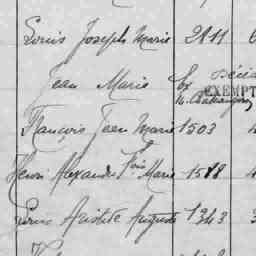 Louis Joseph Marie 2111 6
Jean Marie Ex
EXEMPT
François Jean Marie 1503
Henri Alexandre Fois Marie 1518
Louis Aristide Auguste 1343 3